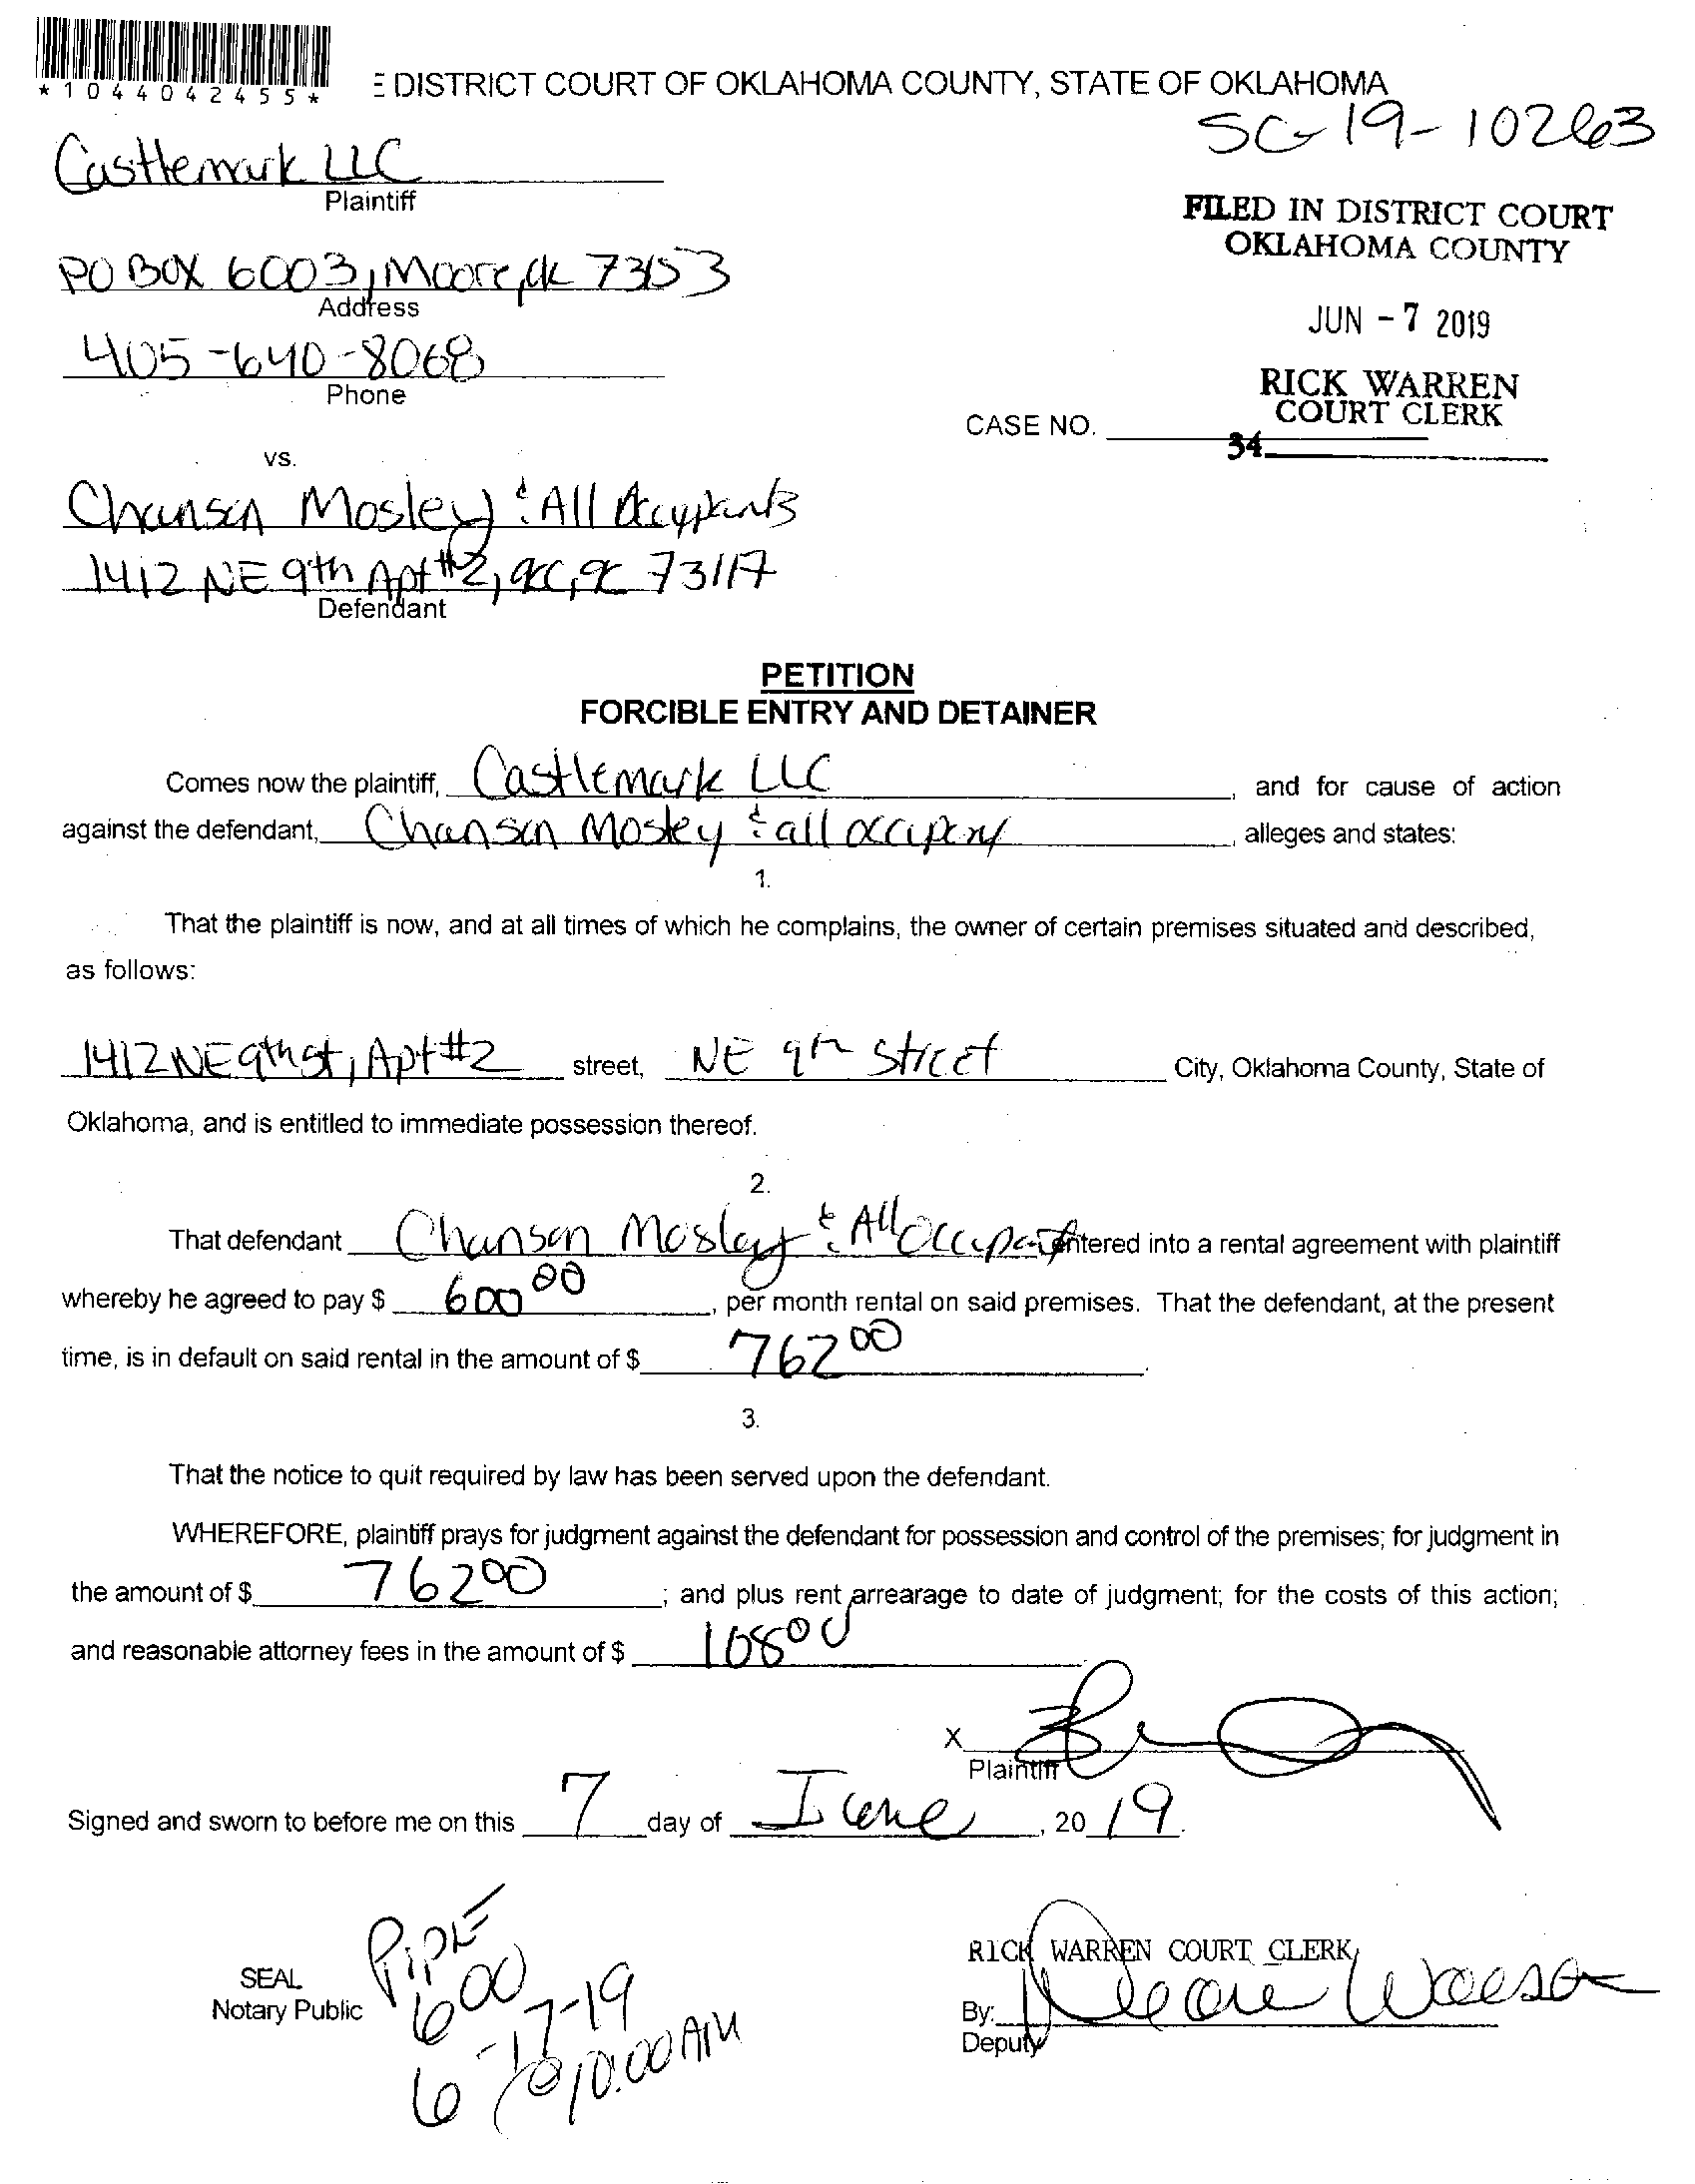 *1044042455*
E DISTRICT COURT OF OKLAHOMA COUNTY, STATE OF OKLAHOMA
SC-19-10263
Castlemark LLC
Plaintiff
FILED IN DISTRICT COURT
OKLAHOMA COUNTY
PO BOX 6003, Moore, ok 73153
Address
JUN - 7 2019
405-640-8068
Phone
RICK WARREN
COURT CLERK
CASE NO.
34
vs.
Chansen Mosley & All Occupants
1412 NE 9th Apt #2, OKC, OK 73117
Defendant
PETITION
FORCIBLE ENTRY AND DETAINER
Comes now the plaintiff, Castlemark LLC, and for cause of action
against the defendant, Chansen Mosley & all occupant, alleges and states:
1.
That the plaintiff is now, and at all times of which he complains, the owner of certain premises situated and described,
as follows:
1412 NE 9th st, Apt #2 street, NE 9th Street City, Oklahoma County, State of
Oklahoma, and is entitled to immediate possession thereof.
2.
That defendant Chansen Mosley & All Occupant entered into a rental agreement with plaintiff
whereby he agreed to pay $ 600 00, per month rental on said premises. That the defendant, at the present
time, is in default on said rental in the amount of $ 762 00.
3.
That the notice to quit required by law has been served upon the defendant.
WHEREFORE, plaintiff prays for judgment against the defendant for possession and control of the premises; for judgment in
the amount of $ 762 00; and plus rent arrearage to date of judgment; for the costs of this action;
and reasonable attorney fees in the amount of $ 108 00
X
Plaintiff
Signed and sworn to before me on this 7 day of June, 20 19.
SEAL
Notary Public
600
6-17-19
@ 10:00 AM
RICK WARREN COURT CLERK
By:
Deputy